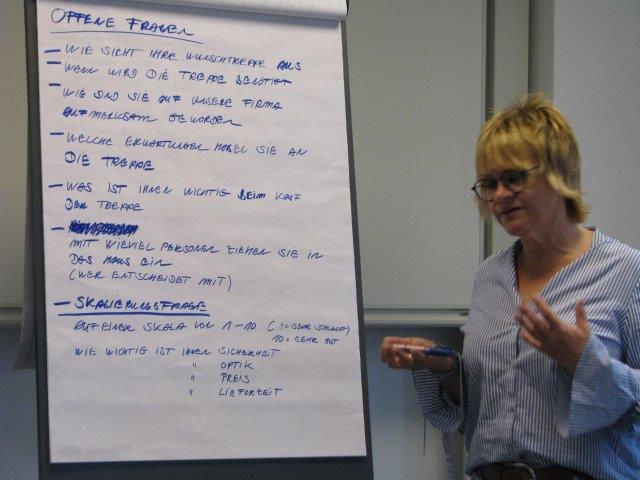 OFFENE FRAGEN
- WIE SIEHT IHRE WUNSCHTREPPE AUS
- WANN WIRD DIE TREPPE BENÖTIGT
- WIE SIND SIE AUF UNSERE FIRMA
AUFMERKSAM GEWORDEN
- WELCHE ERWARTUNGEN HABEN SIE AN
DIE TREPPE
- WAS IST IHNEN WICHTIG BEIM KAUF
DER TREPPE
-
MIT WIEVIEL PERSONEN ZIEHEN SIE IN
DAS HAUS EIN
(WER ENTSCHEIDET MIT)
- SKALIERUNGSFRAGE
AUF EINER SKALA VON 1-10 (1=SEHR SCHLECHT)
10 = SEHR GUT
WIE WICHTIG IST IHNEN SICHERHEIT
" OPTIK
" PREIS
" LIEFERZEIT